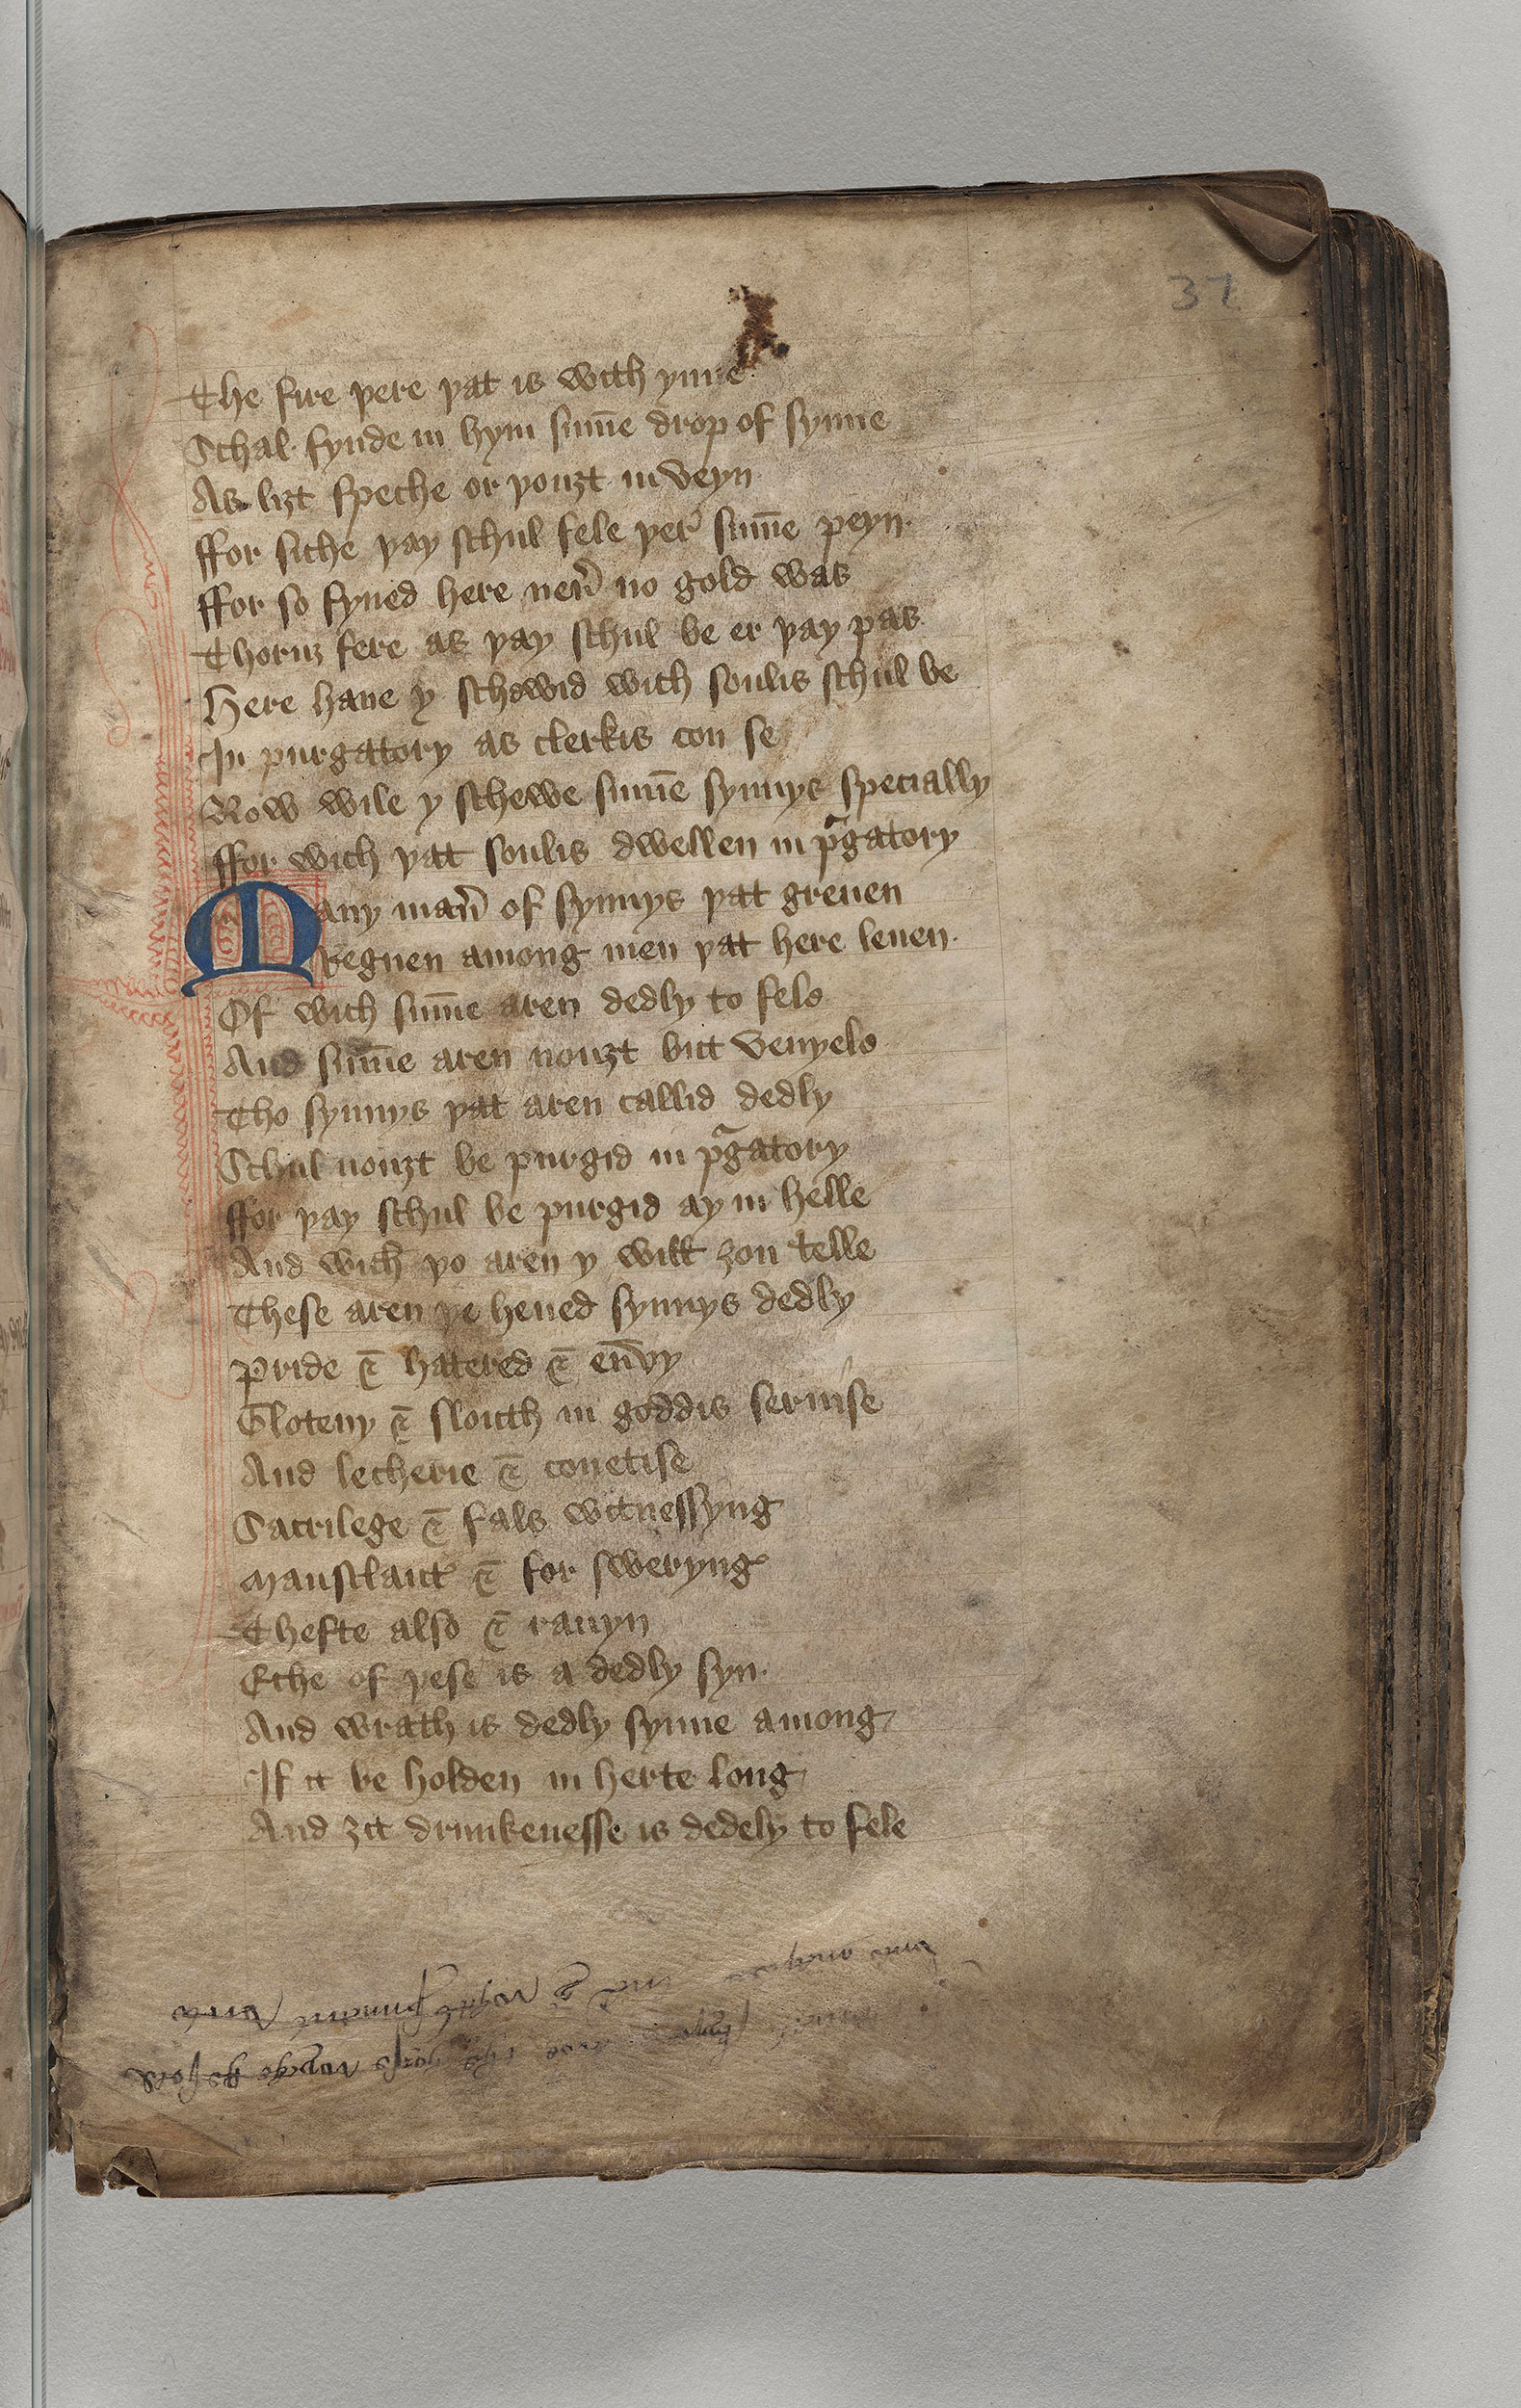 37
The fire yere yat is with ynne
Schal fynde in hym sum̄e drop of synne
As liȝt speche or youȝt in veyn
ffor siche yay schul fele yer sum̄e peyn
ffor so fyned here neu̓ no gold was
Thoruȝ fere as yay schul be er yay pas
Here haue y schewid with soulis schul be
In purgatory as clerkis con se
Now wile y schewe sum̄e synnys specially
ffor wich yat soulis dwellen in pᵃgatory
Many man̓ of synnys yat greuen
regnen among men yat here leuen
Of wich sum̄e aren dedly to fele
And sum̄e aren nouȝt but venyele
Tho synnys yat aren callid dedly
Schul nouȝt be purgid in pᵃgatory
ffor yay schul be purgid ay in helle
And wich yo aren y will ȝou telle
These aren ye heued synnys dedly
Pride & hatered & enuy
Gloteny & slouth in goddis seruise
And lecherie & couetise
Sacrilege & fals witnessyng
Mansclaut & for sweryng
Thefte also & rauyn
Eche of yese is a dedly syn
And wrath is dedly synne among
If it be holden in herte long
And ȝit drunkenesse is dedely to fele